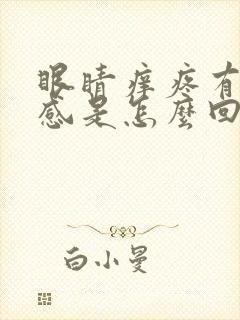 眼睛痒疼有
感是怎麼回
白小曼